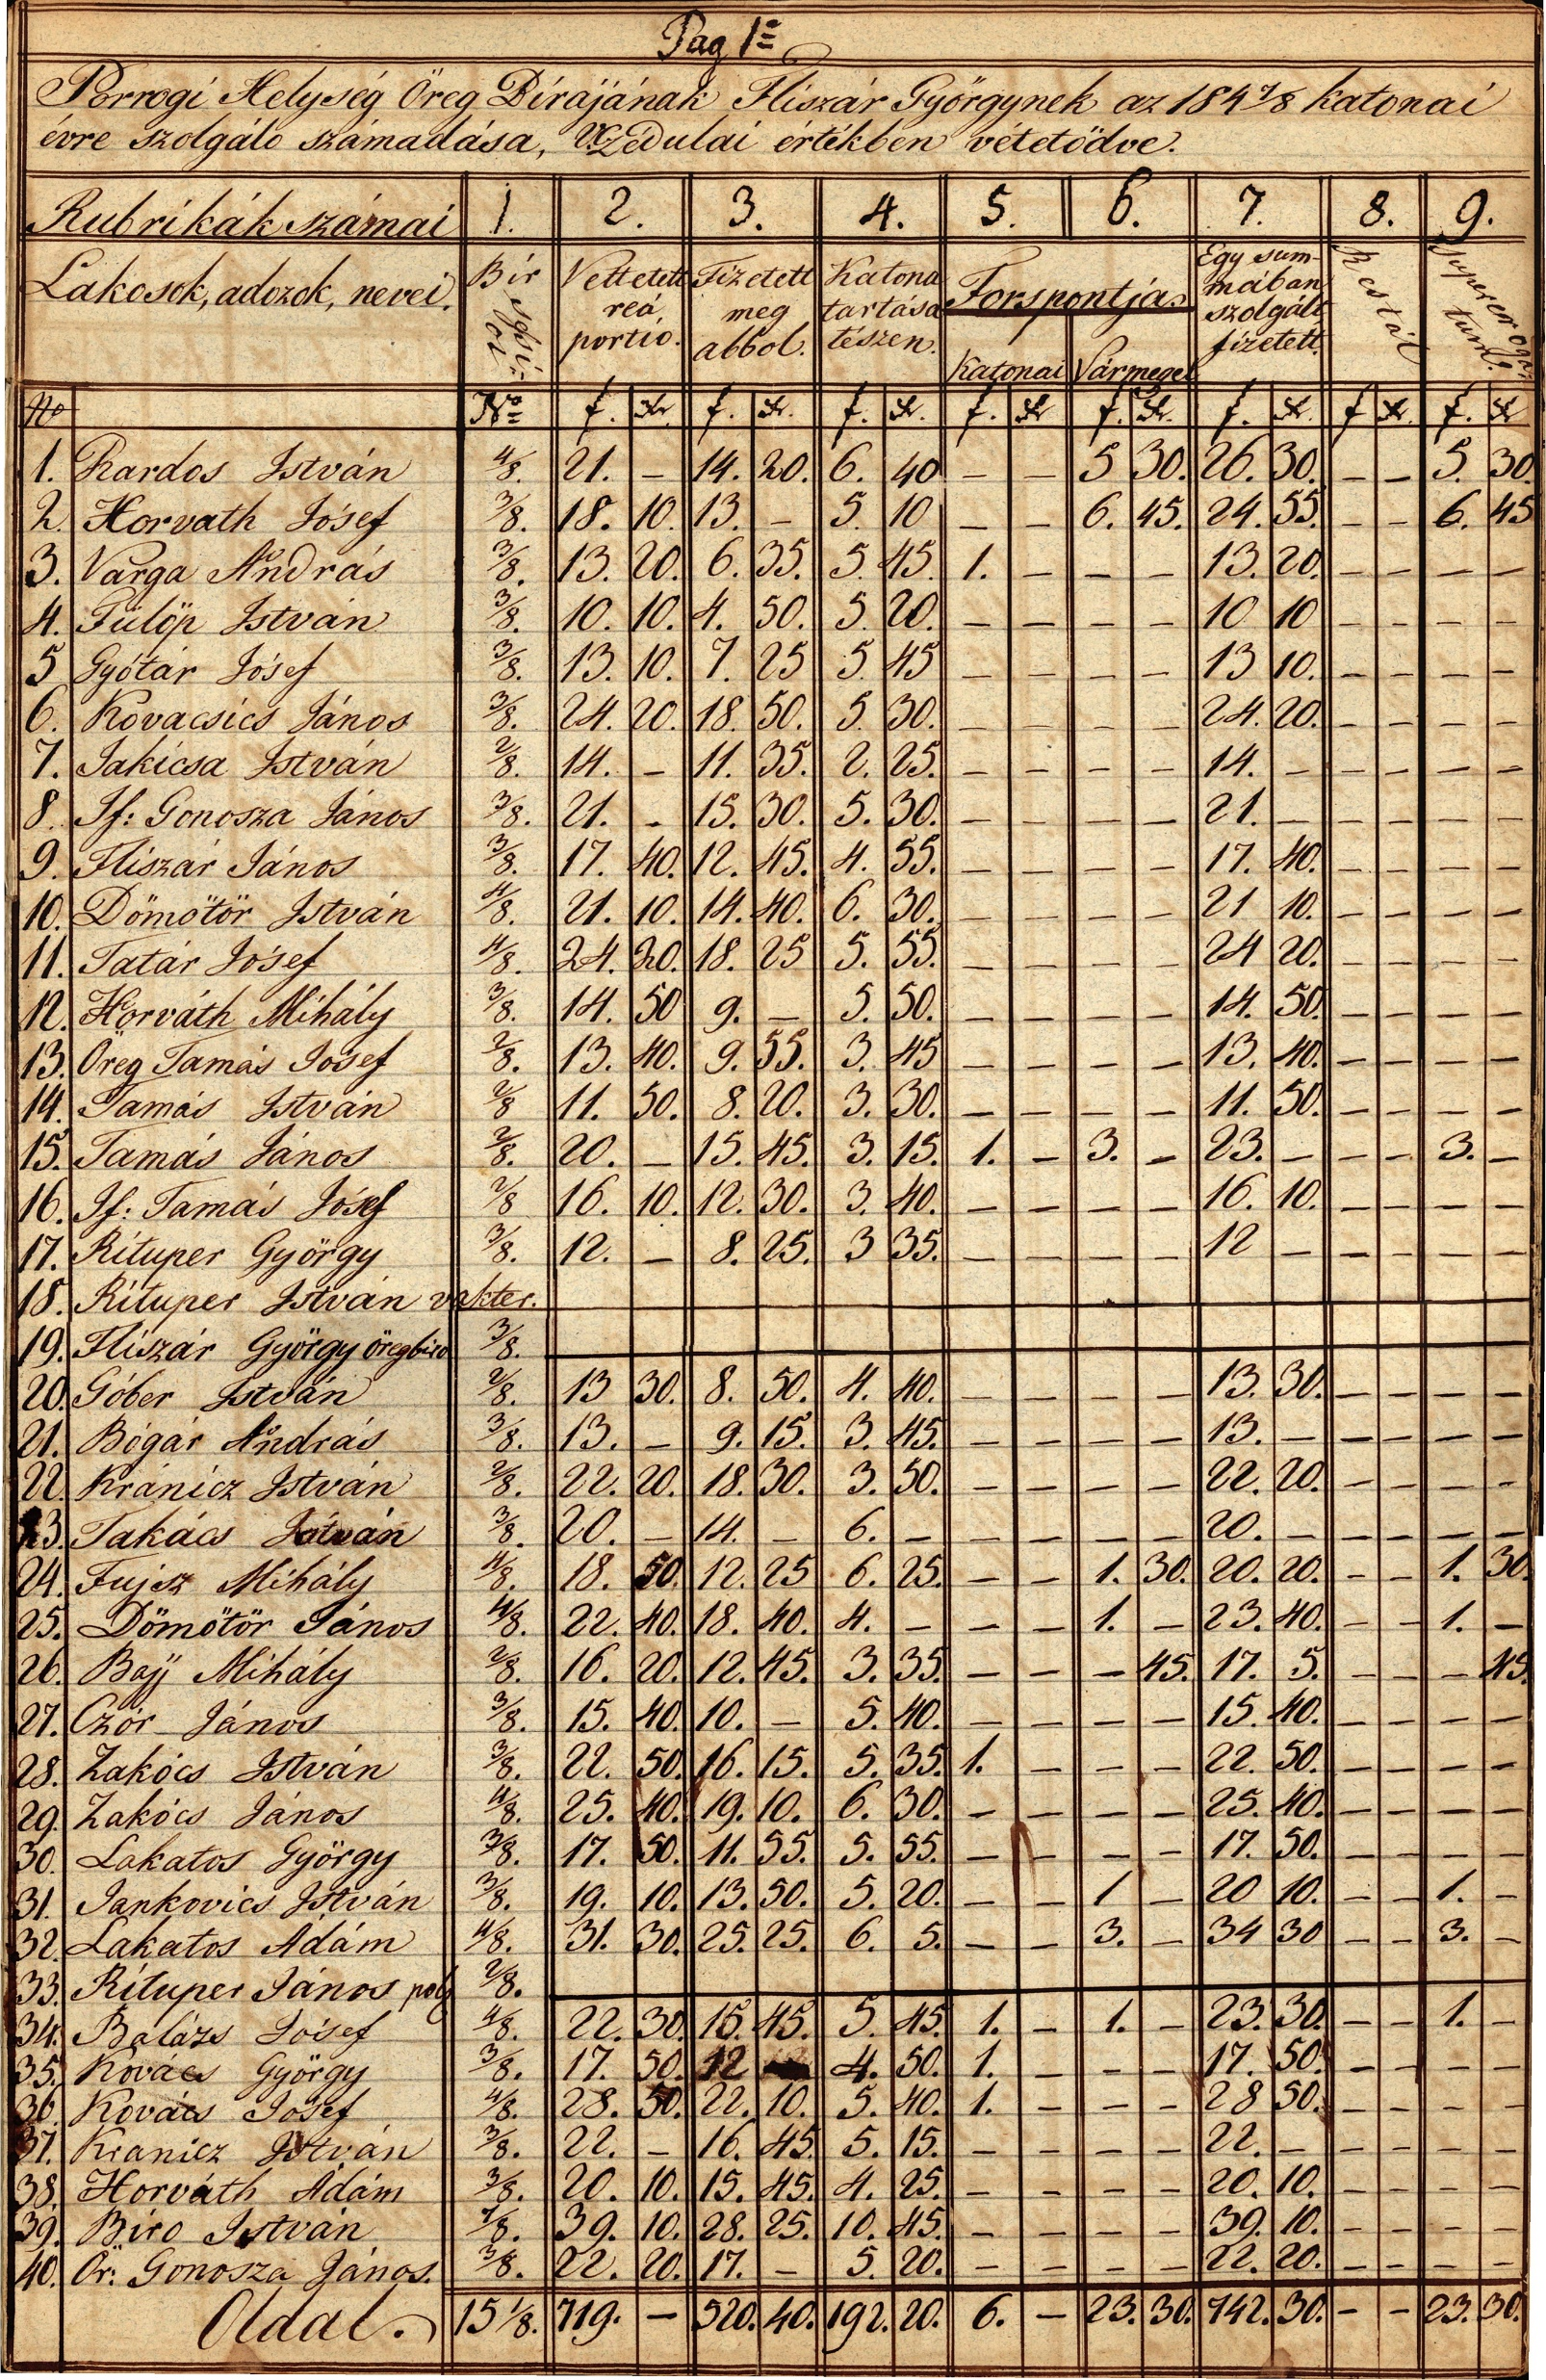 Pag 1=
Porrogi Helység Öreg Birájának Fliszár Györgynek az 184 7/8 katonai
évre szolgáló számadása, Vczédulai értékben vétetödve.
Rubrikák számai 1. 2. 3. 4. 5. 6. 7. 8. 9.
Lakosok, adozok, nevei. Vettetett reá, portio. Fizetett meg abbol. Katona tartása tészen. Forspontja Katonai Vármegei Egy summában szolgált fizetett. Restál Supererogatum.
No No f. xr. f. xr. f. xr. f. xr f. xr. f. xr. f xr. f. xr
1. Kardos István 4/8. 21. – 14. 20. 6. 40 – – 5 30. 26. 30. – – 5. 30
2. Horvath Jósef 3/8. 18. 10. 13. – 5. 10 – – 6. 45. 24. 55. – – 6. 45
3. Varga András 3/8. 13. 20. 6. 35. 5. 45. 1. – – – 13. 20. – – – –
4. Fülöp István 3/8. 10. 10. 4. 50. 5. 20. – – – – 10 10 – – – –
5 Gyótár Jósef 3/8. 13. 10. 7. 25 5. 45 – – – – 13 10. – – – –
6. Kovacsics János 3/8. 24. 20. 18. 50. 5. 30. – – – – 24. 20. – – – –
7. Jakicsa István 2/8. 14. – 11. 35. 2. 25. – – – – 14. – – – – –
8. If: Gonosza János 3/8. 21. – 15. 30. 5. 30. – – – – 21. – – – – –
9. Fliszár János 3/8. 17. 40. 12. 45. 4. 55. – – – – 17. 40. – – – –
10. Dömötör István 4/8. 21. 10. 14. 40. 6. 30. – – – – 21 10. – – – –
11. Tatár Jósef 4/8. 24. 20. 18. 25 5. 55. – – – – 24 20. – – – –
12. Horváth Mihály 3/8. 14. 50 9. – 5. 50. – – – – 14. 50. – – – –
13. Öreg Tamás Josef 2/8. 13. 40. 9. 55. 3. 45 – – – – 13. 40. – – – –
14. Tamás István 2/8 11. 50. 8. 20. 3. 30. – – – – 11. 50. – – – –
15. Tamás János 2/8. 20. – 15. 45. 3. 15. 1. – 3. – 23. – – – 3. –
16. If: Tamás Jósef 2/8 16. 10. 12. 30. 3. 40. – – – – 16. 10. – – – –
17. Rituper György 3/8. 12. – 8. 25. 3 35. – – – – 12 – – – – –
18. Rituper István vakter.
19. Fliszár György öregbiro 3/8.
20. Góber István 2/8. 13 30. 8. 50. 4. 40. – – – – 13. 30. – – – –
21. Bógár András 3/8. 13. – 9. 15. 3. 45. – – – – 13. – – – – –
22. Kránicz István 2/8. 22. 20. 18. 30. 3. 50. – – – – 22. 20. – – – –
23. Takács István 3/8. 20. – 14. – 6. – – – – – 20. – – – – –
24. Fujsz Mihály 4/8. 18. 50. 12. 25 6. 25. – – 1. 30. 20. 20. – – 1. 30.
25. Dömötör János 4/8. 22. 40. 18. 40. 4. – – – 1. – 23. 40. – – 1. –
26. Bajj Mihály 2/8. 16. 20. 12. 45. 3. 35. – – – 45. 17. 5. – – – 45.
27. Czór János 3/8. 15. 40. 10. – 5. 40. – – – – 15. 40. – – – –
28. Zakócs István 3/8. 22. 50. 16. 15. 5. 35. 1. – – – 22. 50. – – – –
29. Zakócs János 4/8. 25. 40. 19. 10. 6. 30. – – – – 25. 40. – – – –
30. Lakatos György 3/8. 17. 50. 11. 55. 5. 55. – – – – 17. 50. – – – –
31. Jankovics István 3/8. 19. 10. 13. 50. 5. 20. – – 1 – 20 10. – – 1. –
32. Lakatos Ádám 4/8. 31. 30. 25. 25. 6. 5. – – 3. – 34 30 – – 3. –
33. Rituper János polg 2/8.
34. Balázs Jósef 4/8. 22. 30. 15. 45. 5. 45. 1. – 1. – 23. 30. – – 1. –
35. Kovács György 3/8. 17. 50. 12 4. 50. 1. – – – 17. 50. – – – –
36. Kovács Josef 4/8. 28. 50. 22. 10. 5. 40. 1. – – – 28 50. – – – –
37. Kranicz István 3/8. 22. – 16. 45. 5. 15. – – – – 22. – – – – –
38. Horváth Ádám 3/8. 20. 10. 15. 45. 4. 25. – – – – 20. 10. – – – –
39. Biro István 7/8. 39. 10. 28. 25. 10. 45. – – – – 39. 10. – – – –
40. Ör: Gonosza János. 3/8. 22. 20. 17. – 5. 20. – – – – 22. 20. – – – –
Oldal. 15 1/8. 719. – 520. 40. 192. 20. 6. – 23. 30. 742. 30. – – 23. 30.